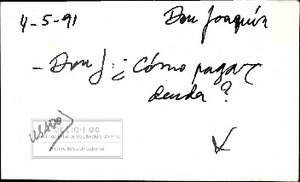 4-5-91 Don Joaquín
- Don J: ¿Cómo pagar
deuda?
USADO